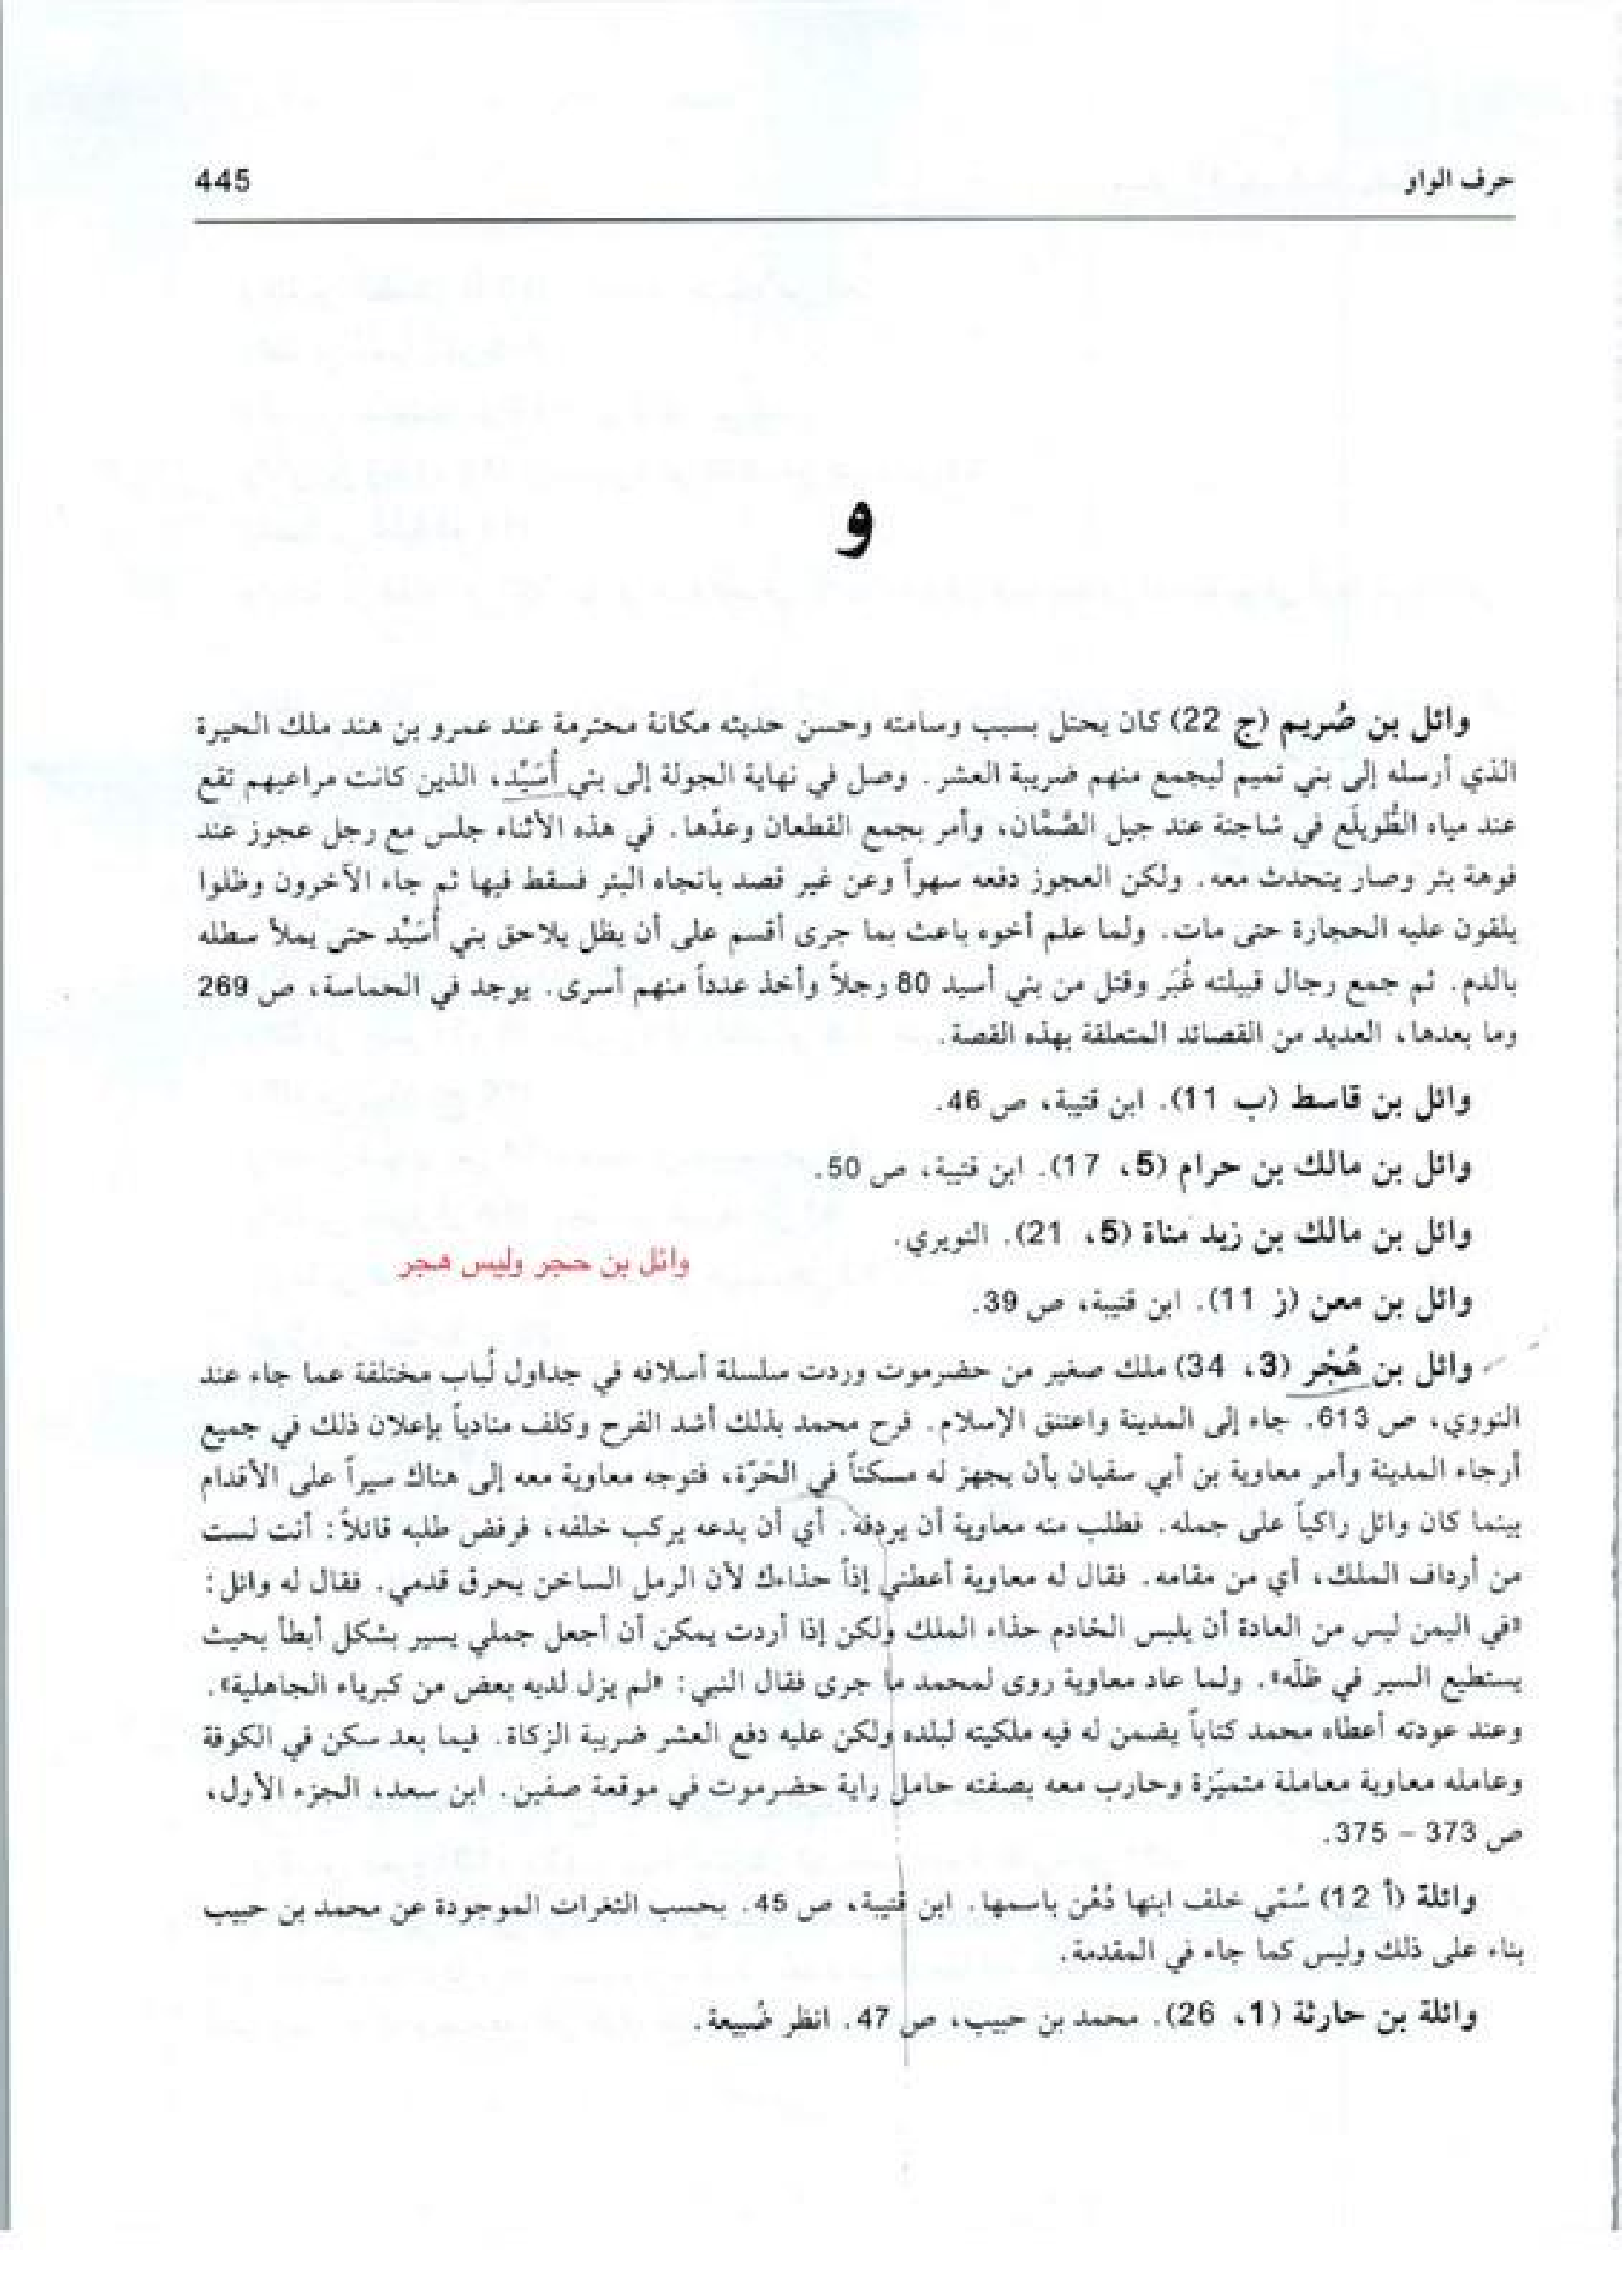 حرف الوار
445
و
وائل بن صُريم (ج 22) كان يحتل بسبب وسامته وحسن حديثه مكانة محترمة عند عمرو بن هند ملك الحيرة
الذي أرسله إلى بني تميم ليجمع منهم ضريبة العشر. وصل في نهاية الجولة إلى بني أُسَيِّد، الذين كانت مراعيهم تقع
عند مياه الطُّويلَع في شاجنة عند جبل الصَّمَّان، وأمر بجمع القطعان وعدّها. في هذه الأثناء جلس مع رجل عجوز عند
فوهة بئر وصار يتحدث معه. ولكن العجوز دفعه سهواً وعن غير قصد باتجاه البئر فسقط فيها ثم جاء الآخرون وظلوا
يلقون عليه الحجارة حتى مات. ولما علم أخوه باعث بما جرى أقسم على أن يظل يلاحق بني أُسَيِّد حتى يملأ سطله
بالدم. ثم جمع رجال قبيلته غُبَر وقتل من بني أسيد 80 رجلاً وأخذ عدداً منهم أسرى. يوجد في الحماسة، ص 269
وما بعدها، العديد من القصائد المتعلقة بهذه القصة.
وائل بن قاسط (ب 11). ابن قتيبة، ص 46.
وائل بن مالك بن حرام (5، 17). ابن قتيبة، ص 50.
وائل بن مالك بن زيد مناة (5، 21). النويري.
وائل بن حجر وليس هجر
وائل بن معن (ز 11). ابن قتيبة، ص 39.
وائل بن هُجْر (3، 34) ملك صغير من حضرموت وردت سلسلة أسلافه في جداول لُباب مختلفة عما جاء عند
النووي، ص 613. جاء إلى المدينة واعتنق الإسلام. فرح محمد بذلك أشد الفرح وكلف منادياً بإعلان ذلك في جميع
أرجاء المدينة وأمر معاوية بن أبي سفيان بأن يجهز له مسكناً في الحَرّة، فتوجه معاوية معه إلى هناك سيراً على الأقدام
بينما كان وائل راكباً على جمله. فطلب منه معاوية أن يردفه. أي أن يدعه يركب خلفه، فرفض طلبه قائلاً: أنت لست
من أرداف الملك، أي من مقامه. فقال له معاوية أعطني إذاً حذاءك لأن الرمل الساخن يحرق قدمي. فقال له وائل:
«في اليمن ليس من العادة أن يلبس الخادم حذاء الملك ولكن إذا أردت يمكن أن أجعل جملي يسير بشكل أبطأ بحيث
يستطيع السير في ظلّه». ولما عاد معاوية روى لمحمد ما جرى فقال النبي: «لم يزل لديه بعض من كبرياء الجاهلية».
وعند عودته أعطاه محمد كتاباً يضمن له فيه ملكيته لبلده ولكن عليه دفع العشر ضريبة الزكاة. فيما بعد سكن في الكوفة
وعامله معاوية معاملة متميّزة وحارب معه بصفته حامل راية حضرموت في موقعة صفين. ابن سعد، الجزء الأول،
ص 373 – 375.
وائلة (أ 12) سُمّي خلف ابنها دُهْن باسمها. ابن قتيبة، ص 45. بحسب الثغرات الموجودة عن محمد بن حبيب
بناء على ذلك وليس كما جاء في المقدمة.
وائلة بن حارثة (1، 26). محمد بن حبيب، ص 47. انظر ضُبيعة.